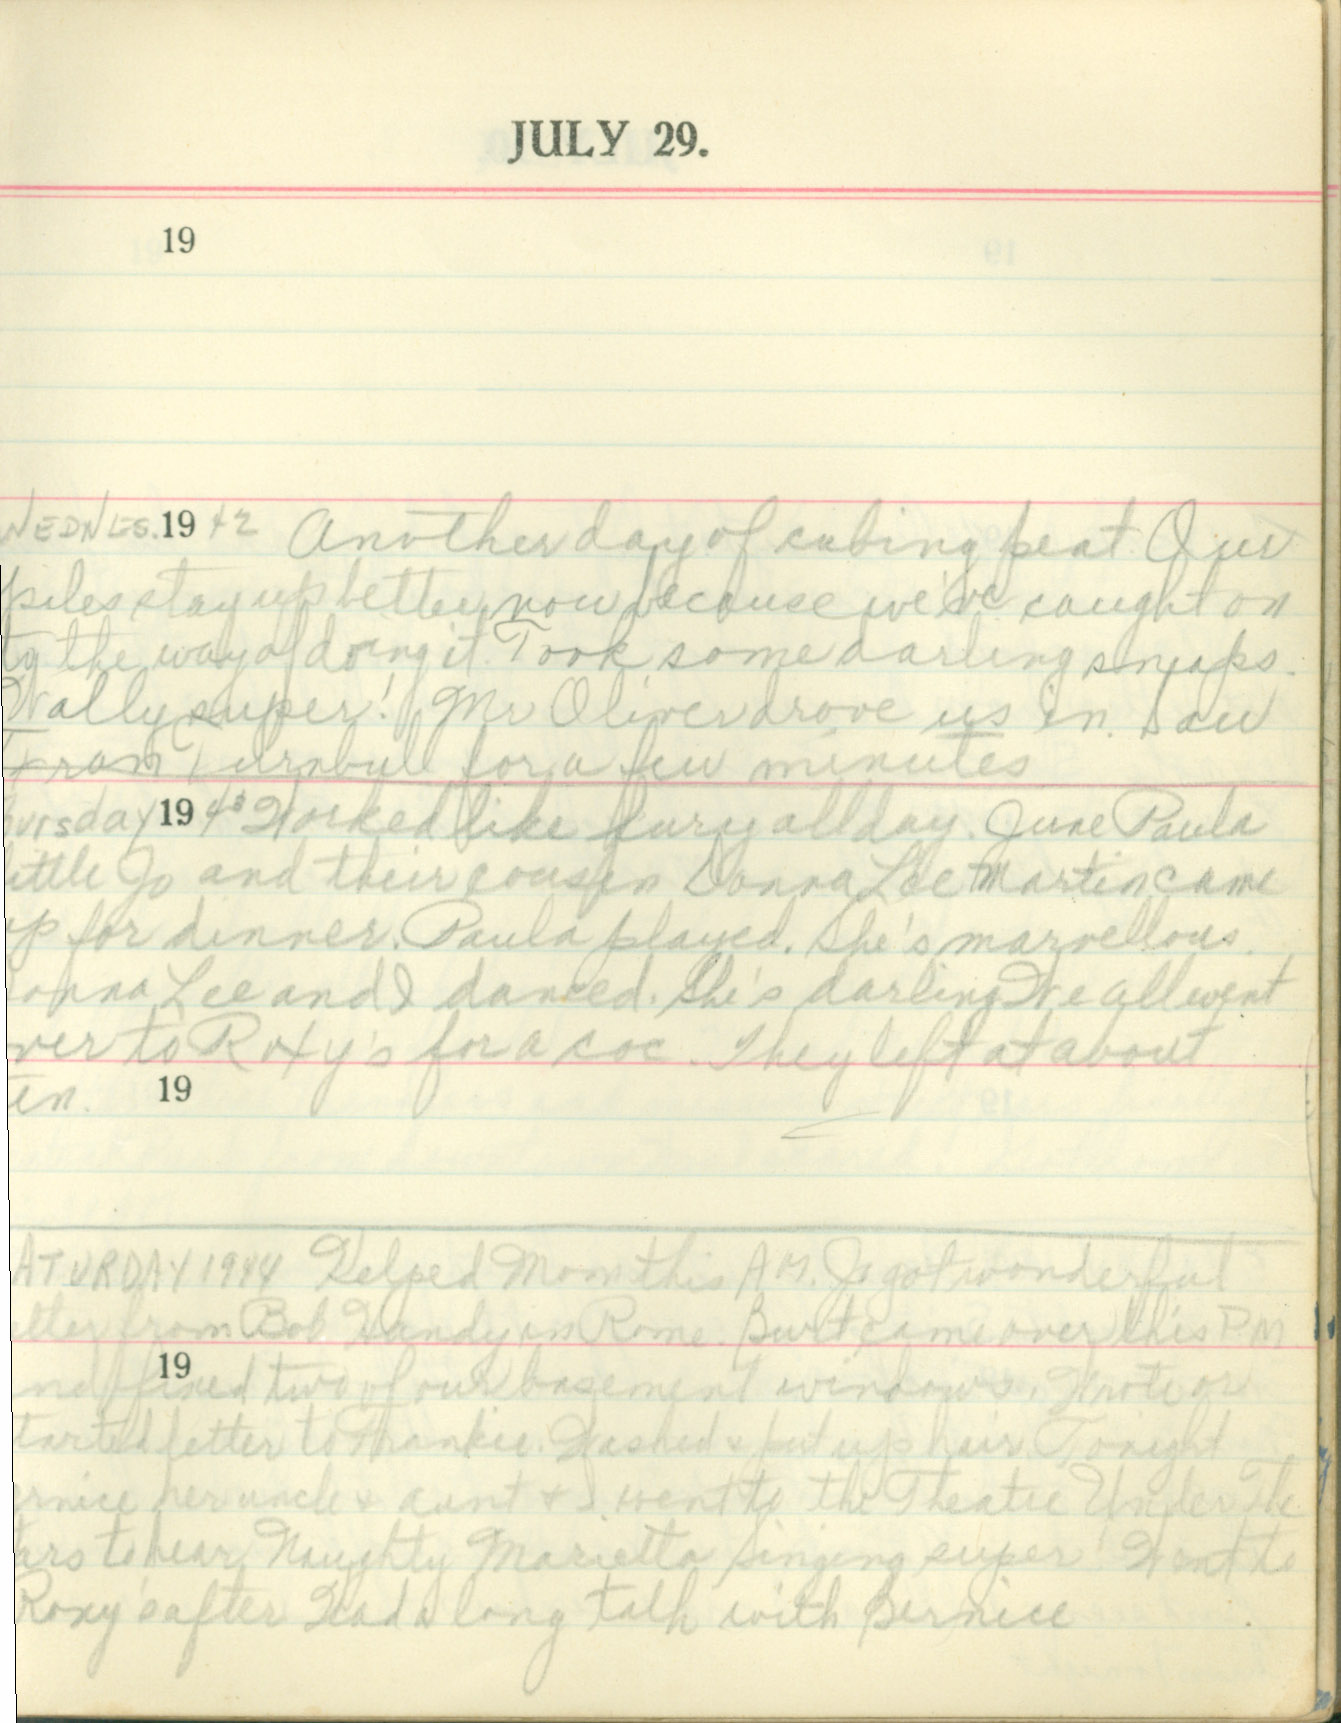 JULY 29.
19
WEDNES. 1942 Another day of cubing peat. Our
piles stay up better now because we've caught on
to the way of doing it. Took some darling snaps.
Wally super! Mr Oliver drove us in. Saw
Fran Turnbull for a few minutes
ursday 1943 Worked like fury all day. June Paula
ittle Jo and their cousin Donna Lee Martin came
up for dinner. Paula played. She's marvellous.
onna Lee and I danced. She's darling. We all went
ver to Roxy's for a coc. They left at about
en. 19
ATURDAY 1944 Helped Mom this A.M. Jo got wonderful
etter from Bob Handy in Rome. Burt came over this PM
19
nd fixed two of our basement windows. Wrote or
tarted letter to Frankie. Washed & put up hair. Tonight
ernice her uncle & aunt & I went to the Theatre Under The
ars to hear Naughty Marietta singing super! Went to
Roxy's after Had a long talk with Bernice